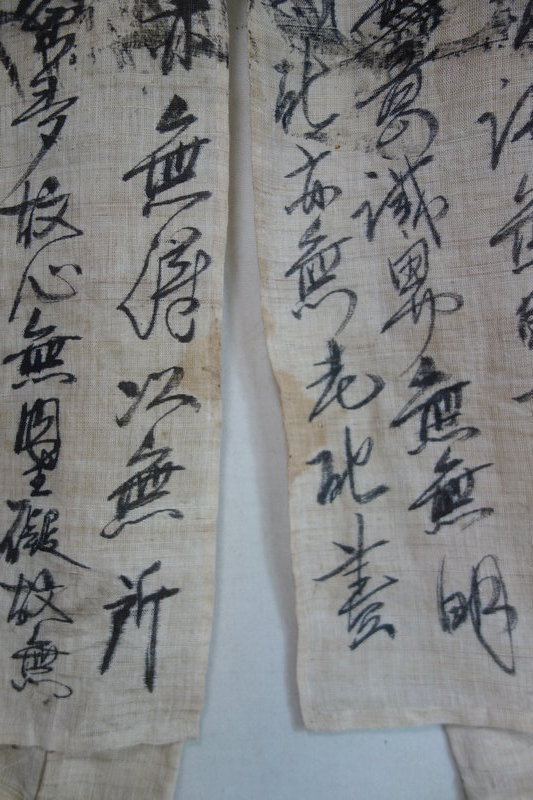 法無
無意識界無無明
死亦無老死盡
亦無得以無所
蜜多故心無罣礙故無